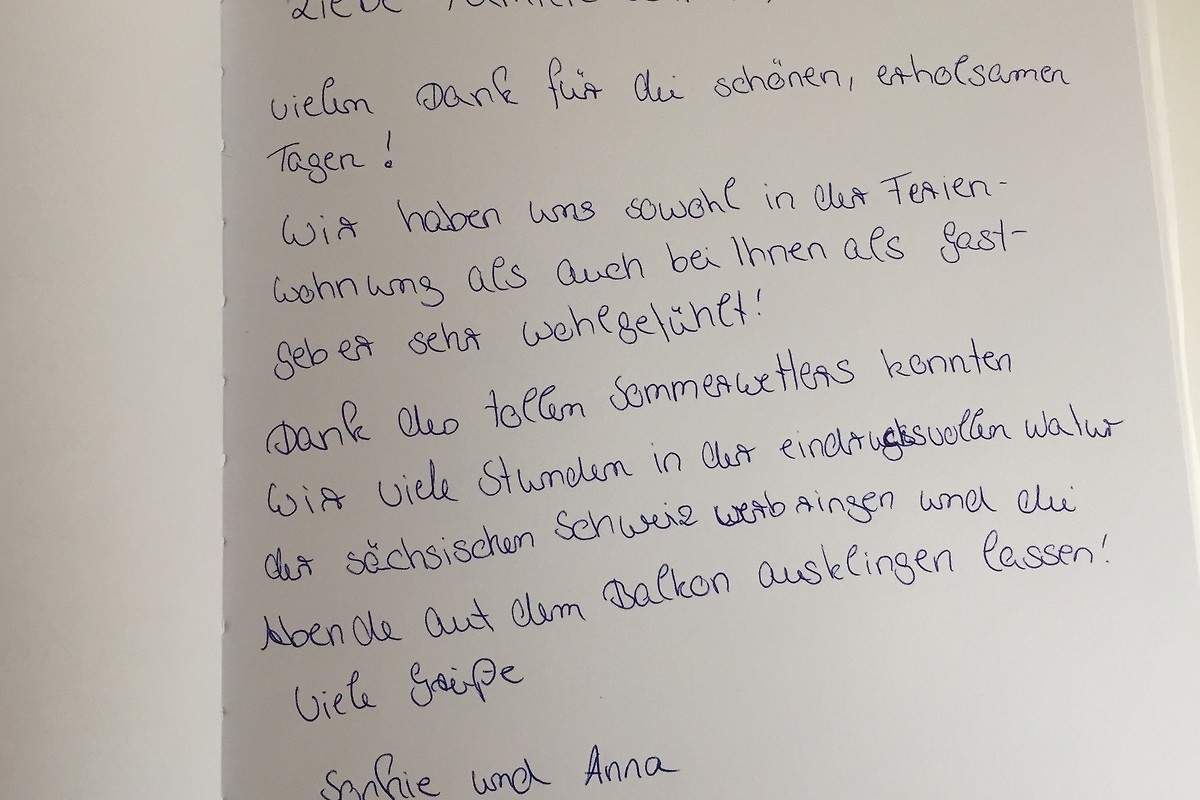 Liebe Familie
vielen Dank für die schönen, erholsamen
Tagen!
Wir haben uns sowohl in der Ferien-
wohnung als auch bei Ihnen als Gast-
geber sehr wohlgefühlt!
Dank des tollen Sommerwetters konnten
wir viele Stunden in der eindrucksvollen Natur
der sächsischen Schweiz verbringen und die
Abende auf dem Balkon ausklingen lassen!
Viele Grüße
Sophie und Anna